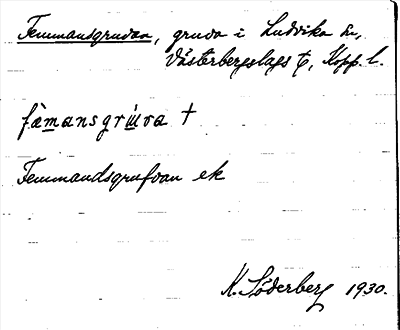 Femmansgruvan, gruva i Ludvika sn,
Västerbergslags t, Kopp. l.
fèmansgrùva †
Femmandsgrufvan ek
K. Söderberg 1930.